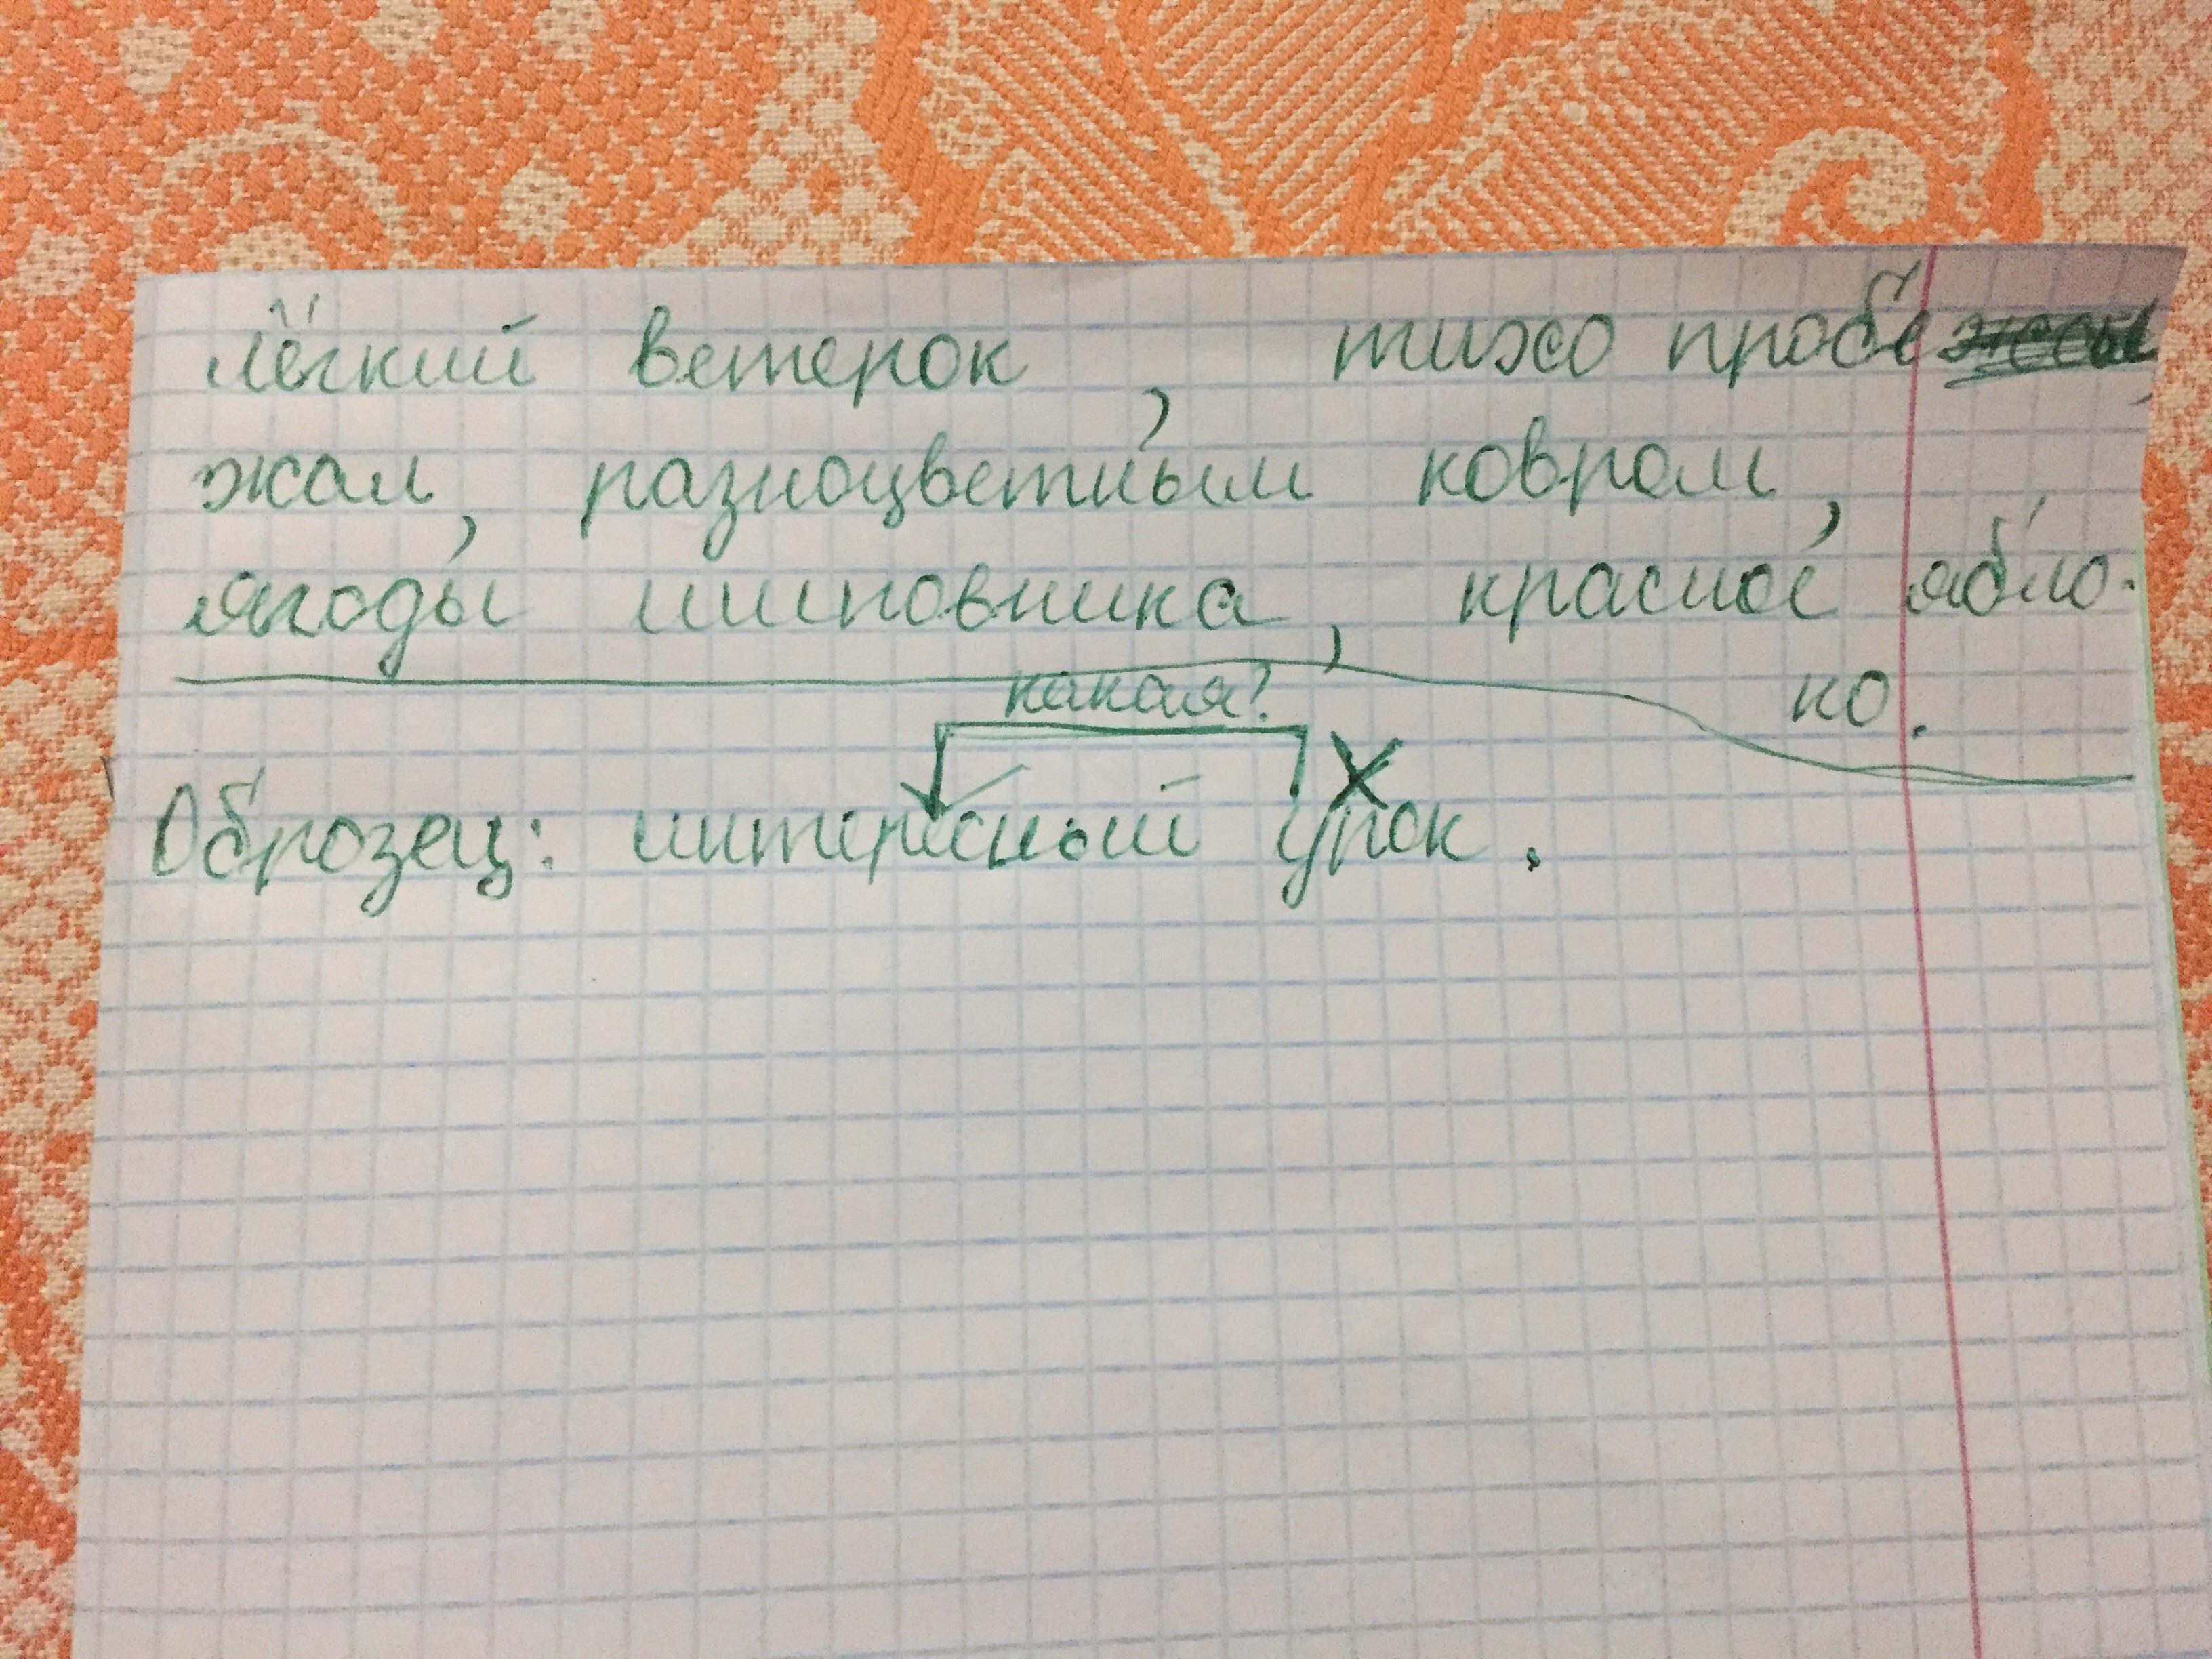 лёгкий ветерок , тихо пробе
жал, разноцветным ковром,
ягоды шиповника, красное ябло-
ко.
какая?
Образец: интересный урок.